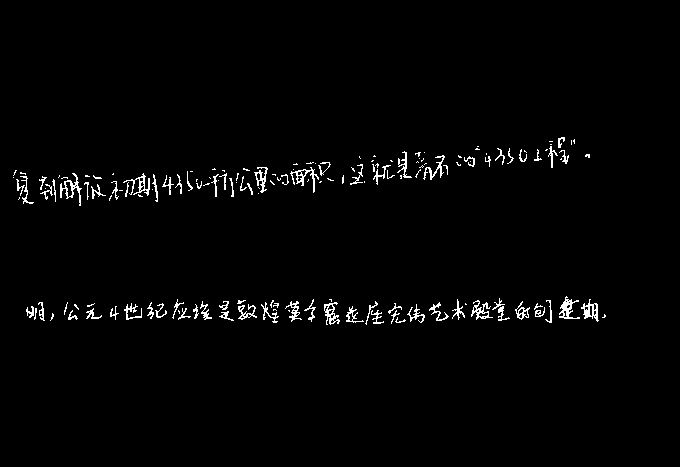 复到解放初期4350平方公里的面积，这就是著名的“4350工程”。
明，公元4世纪应该是敦煌莫高窟这座宏伟艺术殿堂的创建期.